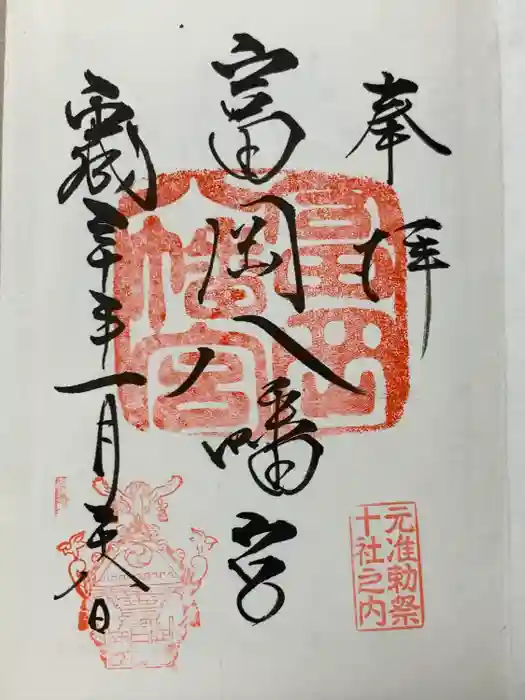 奉拝
富岡八幡宮
三十年一月八日
富岡
八幡宮
元准勅祭
十社之内